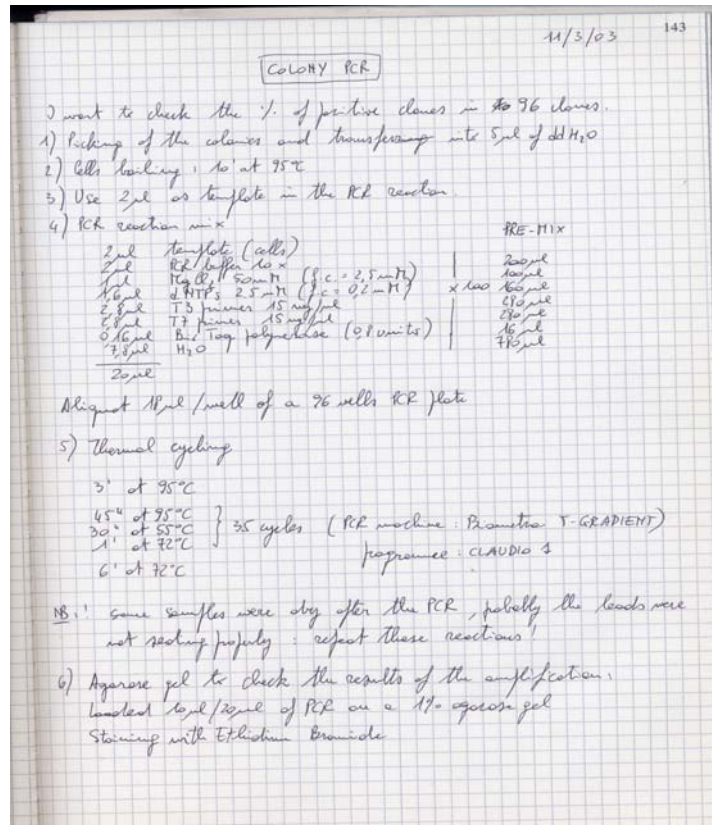 143
11/3/03
COLONY PCR
I want to check the % of positive clones in 96 clones.
1) Picking of the colonies and transferring into 5µl of ddH2O
2) Cells boiling: 10' at 95°C
3) Use 2µl as template in the PCR reaction.
4) PCR reaction mix
PRE-MIX
2µl template (cells)
2µl PCR buffer 10x 200µl
1µl MgCl2 50mM (f.c. = 2,5mM) 100µl
1,6µl dNTPs 2.5mM (f.c. = 0,2mM) x 100 160µl
2,8µl T3 primer 15 ng/µl 280µl
2,8µl T7 primer 15 ng/µl 280µl
0,16µl Bio Taq polymerase (0,8 units) 16µl
7,8µl H2O 780µl
20µl
Aliquot 18µl/well of a 96 wells PCR plate
5) Thermal cycling
3' at 95°C
45" at 95°C
30" at 55°C } 35 cycles (PCR machine: Biometra T-GRADIENT)
1' at 72°C programme: CLAUDIO 1
6' at 72°C
NB:! some samples were dry after the PCR, probably the leads were
not sealing properly: repeat these reactions!
6) Agarose gel to check the results of the amplification:
Loaded 10µl/20µl of PCR on a 1% agarose gel
Staining with Ethidium Bromide